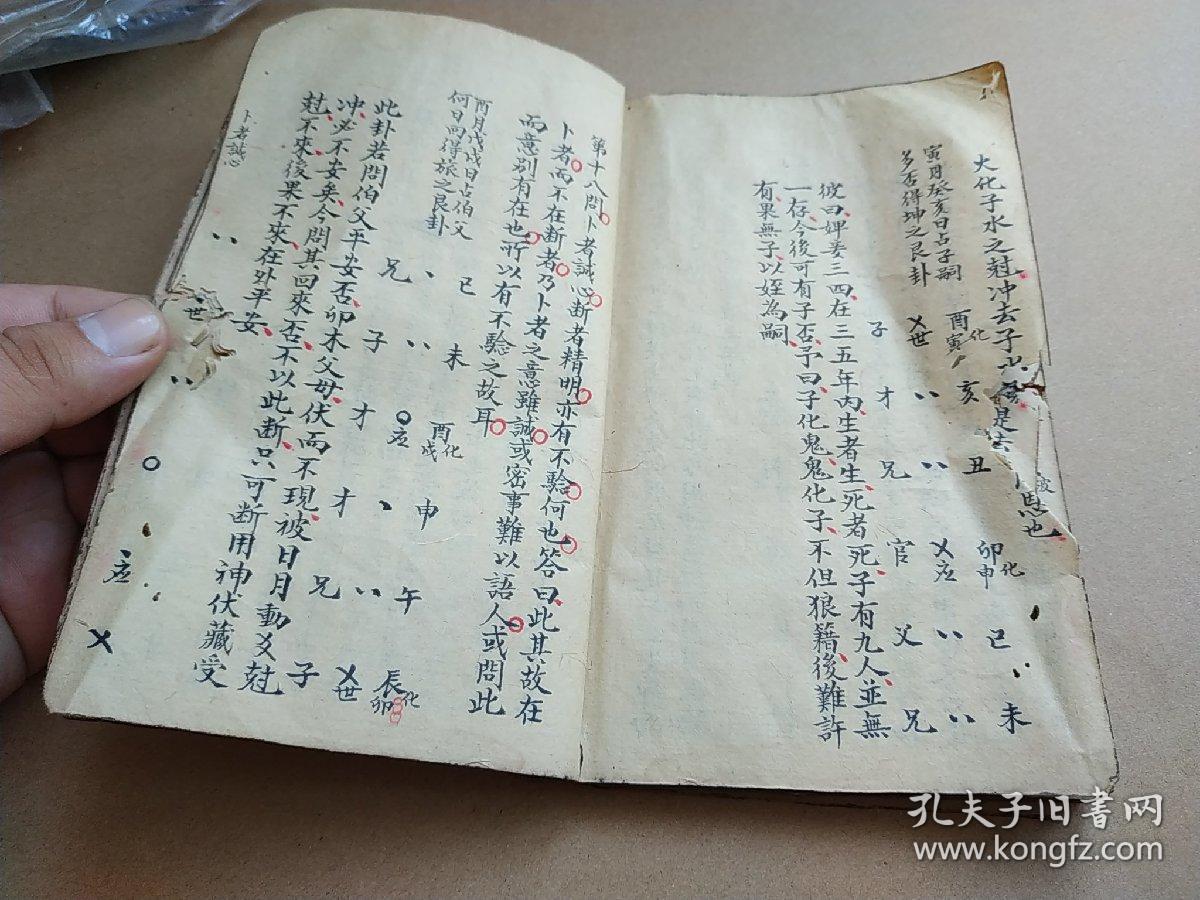 大化子水之尅冲去子
是去
恩也
寅月癸亥日占子嗣
多否得坤之艮卦
子 乂世 酉化寅 亥
才 丑
兄 卯化申
官 乂应 巳
父 未
兄
彼曰婢妾三四在三五年内生者生死者死子有九人並無
一存今後可有子否予曰子化鬼鬼化子不但狼籍後難許
有果無子以姪為嗣
第十八問卜者誠心断者精明亦有不驗何也答曰此其故在
卜者而不在断者乃卜者之意雖誠或密事難以語人或問此
而意别有在也所以有不驗之故耳
酉月戊戌日占伯父
何日而得旅之艮卦
兄 巳
子 未
才 应 酉化戌
才 申
兄 午
子 乂世 辰化卯
此卦若問伯父平安否卯木父母伏而不現被日月動爻尅
冲必不安矣今問其回來否不以此断只可断用神伏藏受
尅不來後果不來在外平安
卜者誠心
世
应
孔夫子旧书网
www.kongfz.com